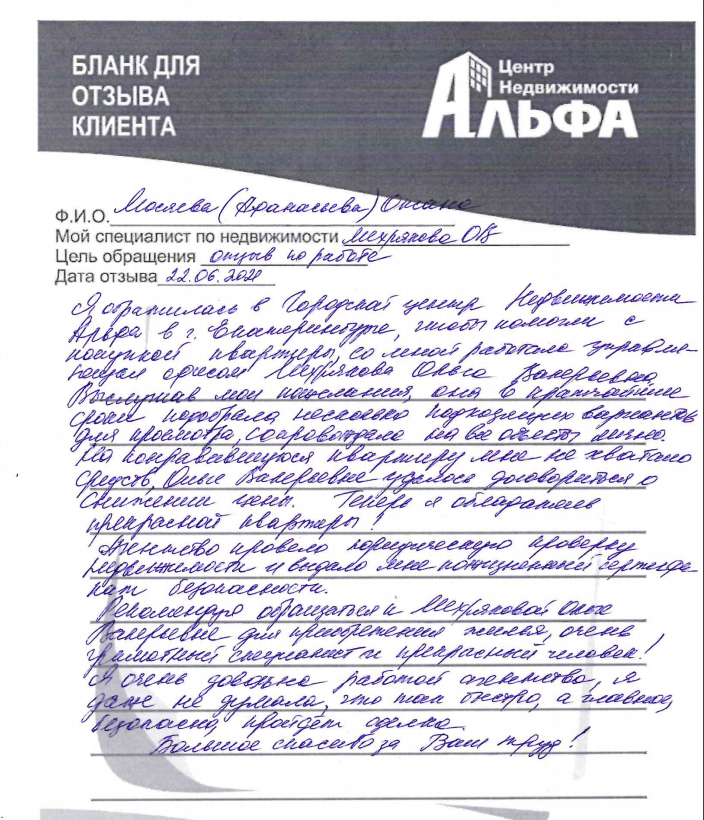 БЛАНК ДЛЯ
ОТЗЫВА
КЛИЕНТА
Центр
Недвижимости
АЛЬФА
Ф.И.О. Мосяева (Афанасьева) Оксана
Мой специалист по недвижимости Мехрякова ОВ
Цель обращения отзыв по работе
Дата отзыва 22.06.2021
Я обратилась в Городской центр Недвижимости
Альфа в г. Екатеринбурге, чтобы помогли с
покупкой квартиры, со мной работала управля-
ющая офисом Мехрякова Ольга Валерьевна
Выслушав мои пожелания, она в кратчайшие
сроки подобрала несколько подходящих вариантов
для просмотра, сопровождала на все объекты лично.
На понравившуюся квартиру мне не хватало
средств, Ольге Валерьевне удалось договориться о
снижении цены. Теперь я обладатель
прекрасной квартиры!
Агенство провело юридическую проверку
недвижимости и выдало мне пожизненный сертифи-
кат безопасности.
Рекомендую обращаться к Мехряковой Ольге
Валерьевне для приобретения жилья, очень
грамотный специалист и прекрасный человек!
Я очень довольна работой агенства, я
даже не думала, что так быстро, а главное,
безопасно, пройдёт сделка.
Большое спасибо за Ваш труд!